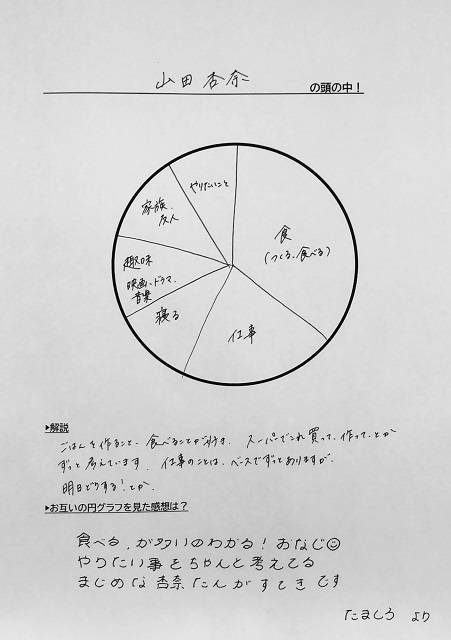 山田 杏奈 の頭の中！
やりたいこと
家族、
友人
食
(つくる、食べる)
趣味
映画、ドラマ、
音楽
寝る
仕事
▶解説
ごはんを作ること、食べることが好き。スーパーでこれ買って、作って、とか
ずっと考えています。仕事のことは、ベースでずっとありますが、
明日どうする！とか。
▶お互いの円グラフを見た感想は？
食べる、が多いのわかる！おなじ☺
やりたい事をちゃんと考えてる
まじめな杏奈たんがすてきです
たましろ より